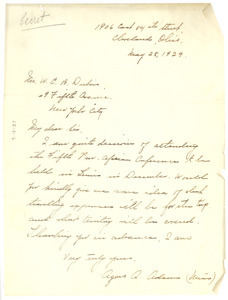 1906 East 84th Street,
Cleveland, Ohio,
May 28, 1929.
Mr. W. E. B. Dubois
69 Fifth Avenue
New York City
My dear Sir:
I am quite desirous of attending
the Fifth Pan-African Conference to be
held in Tunis in December. Would
you kindly give me some idea of what
travelling expenses will be for the trip
and what territory will be covered.
Thanking you in advance, I am
Very truly yours,
Agnes A. Adams (Miss)